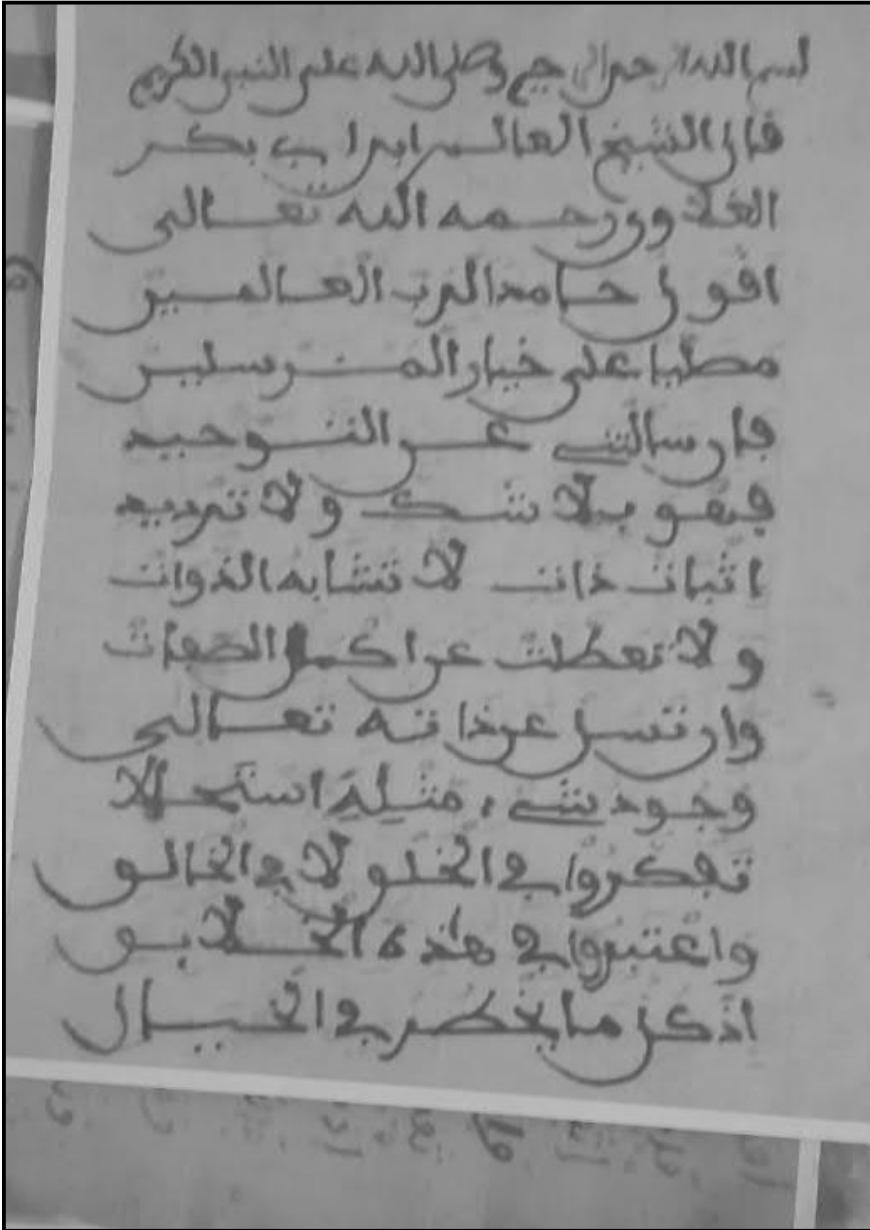 بسم الله الرحمن الرحيم وصلى الله على النبي الكريم
قال الشيخ العالم ابن اب بكر
الغلاوي رحمه الله تعالى
اقول حامدا لرب العالمين
مصليا على خيار المرسلين
فإن سالتني عن التوحيد
فهو بلا شك ولا ترديد
اثبات ذات لا تشابه الذوات
ولا تعطلت عن اكمل الصفات
وان تسل عن ذاته تعالى
وجود شيء مثله استحالا
تفكروا في الخلق لا في الخالق
واعتبروا في هذه الخلايق
اذ كل ما يخطر في الخيال